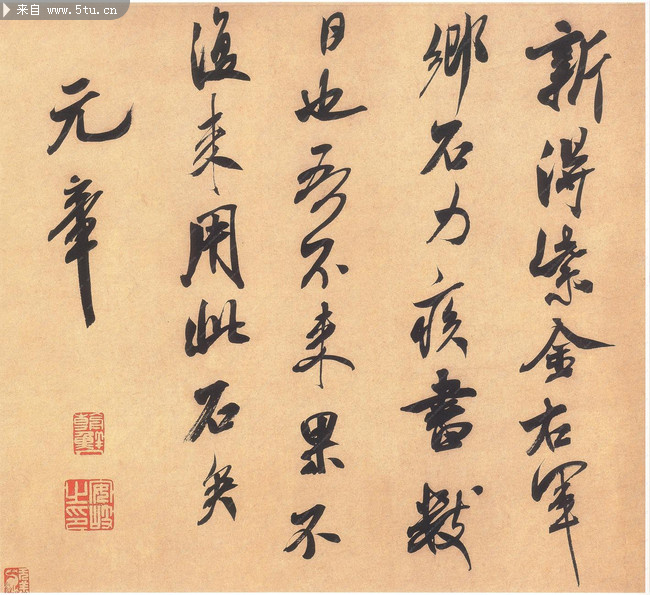 来自 www.5tu.cn
新得紫金右軍
鄉石力疾書數
日也吾不来果不
復来用此石矣
元章
安岐之印